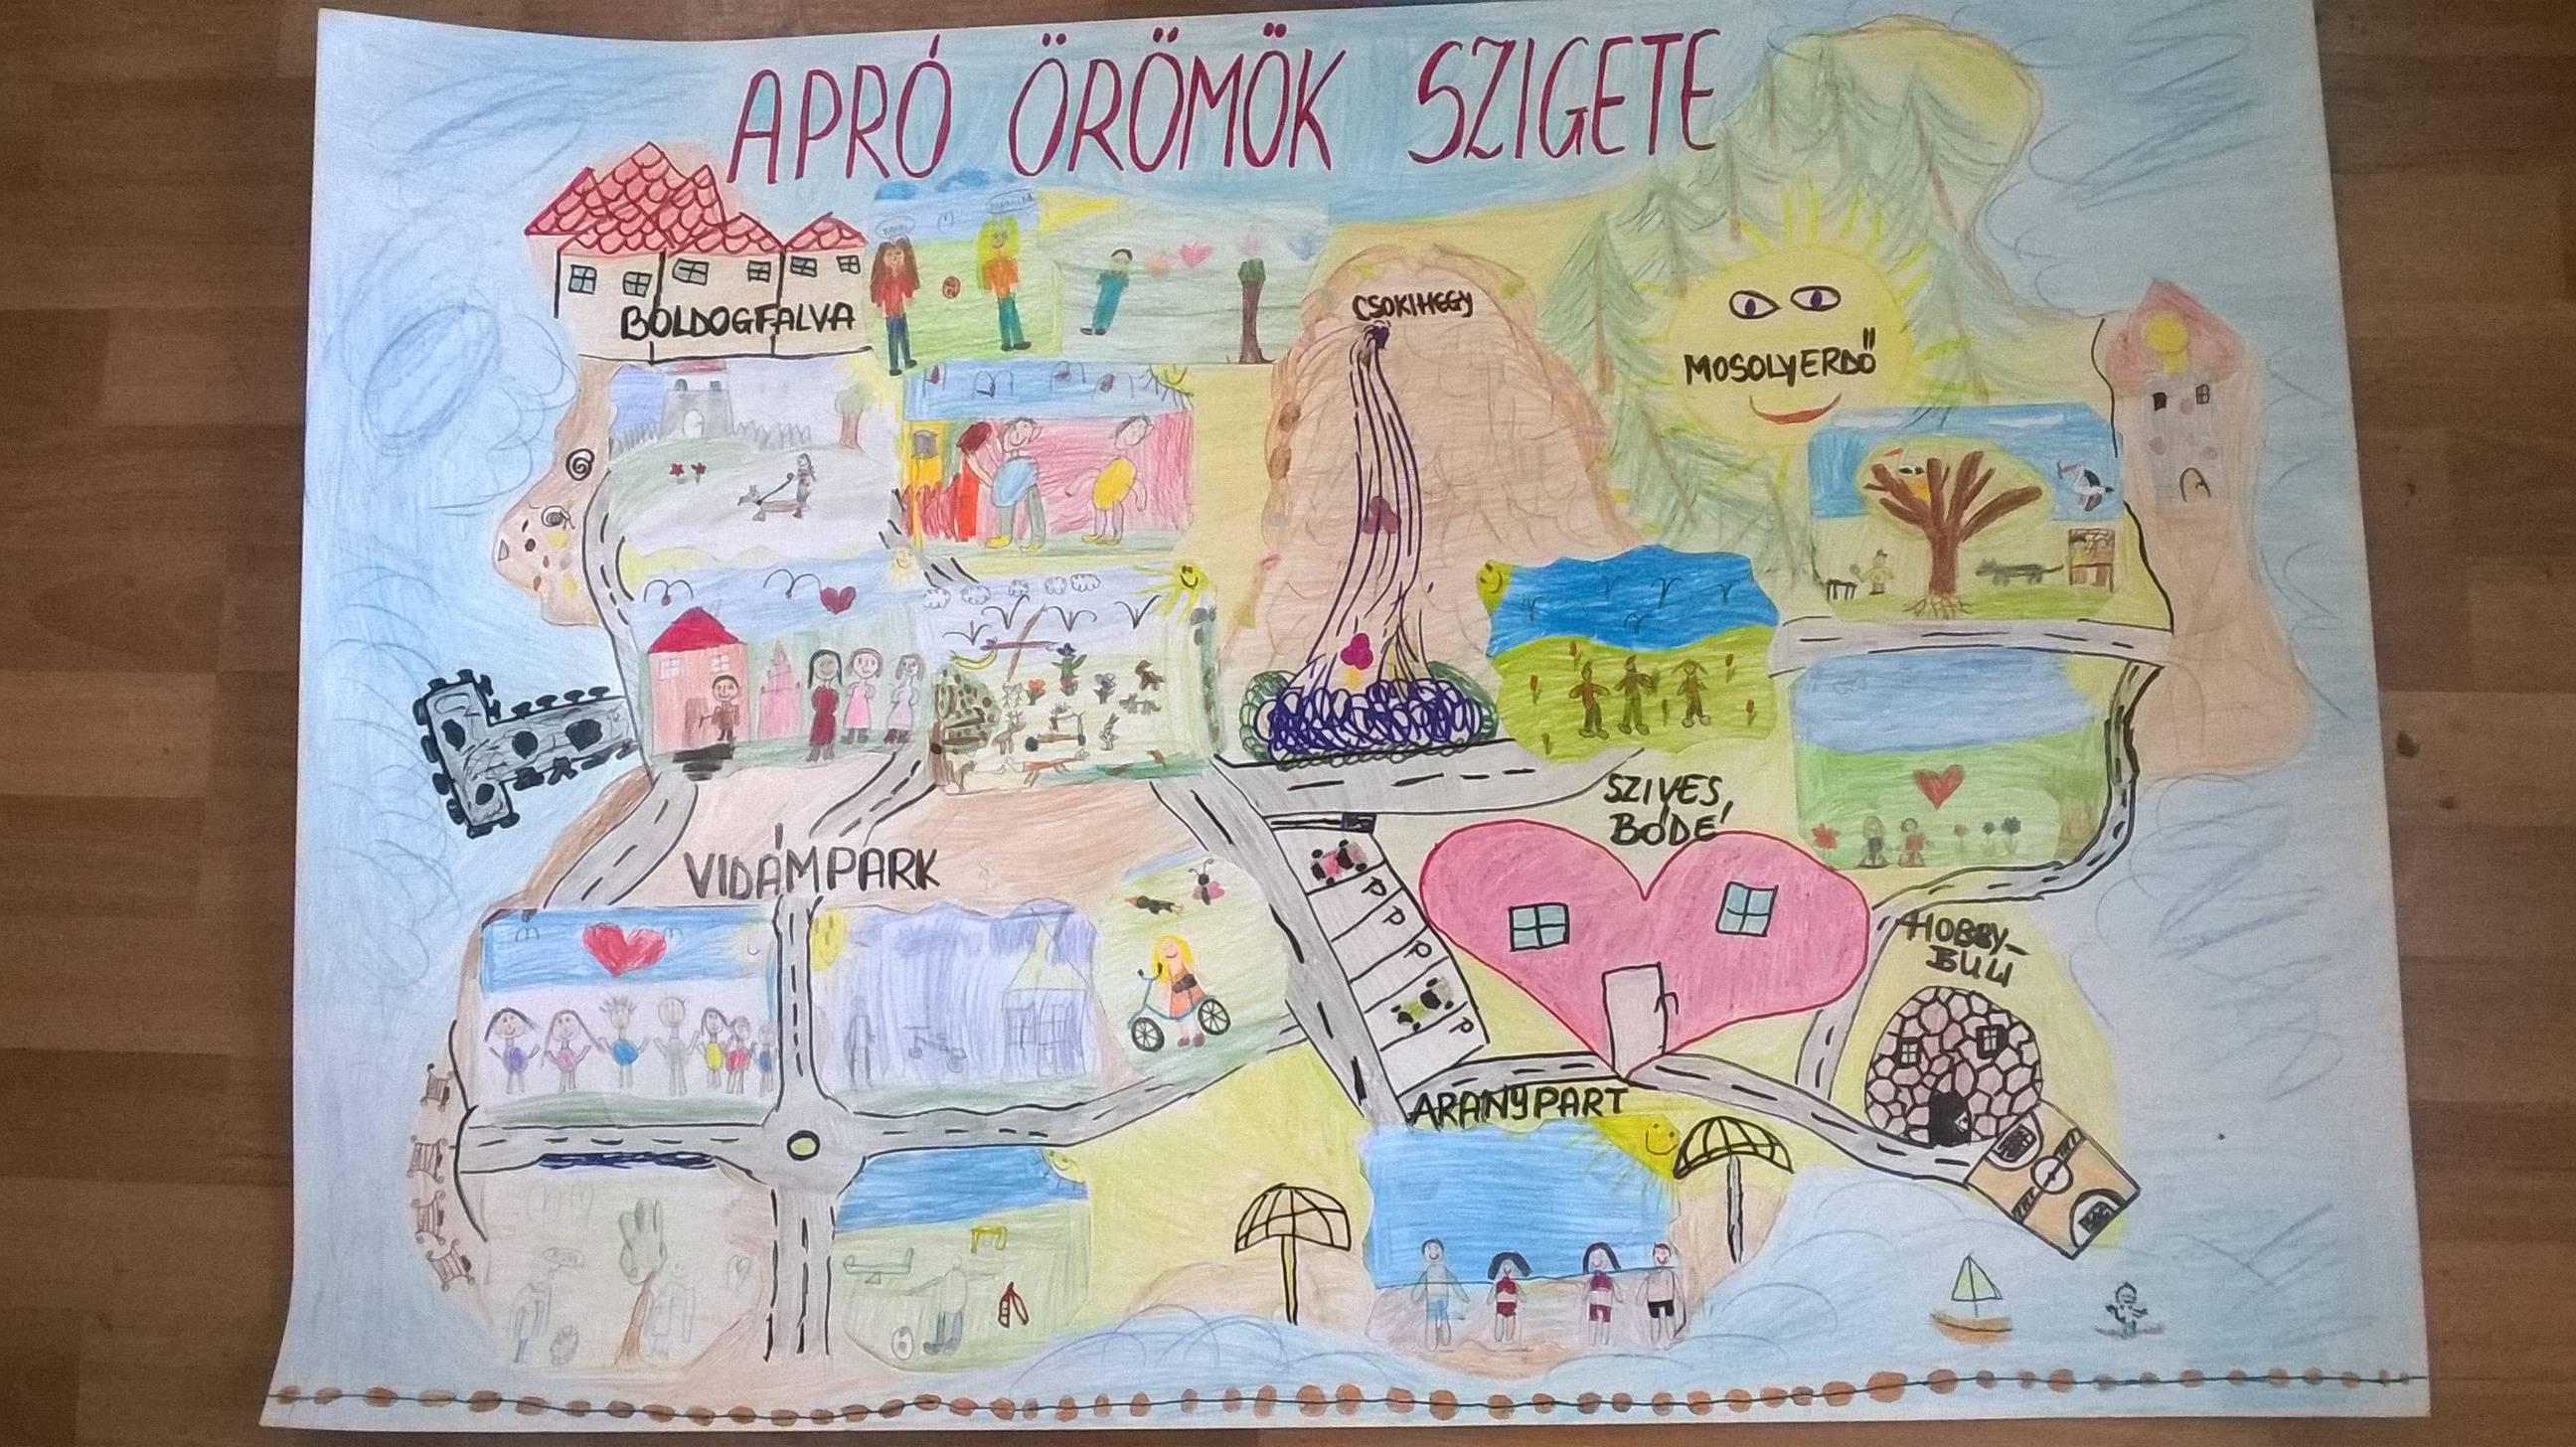 APRÓ ÖRÖMÖK SZIGETE
BOLDOGFALVA
CSOKIHEGY
MOSOLYERDŐ
SZIVES
BÓDÉ
VIDÁMPARK
P
P
P
P
HOBBY-
BULI
ARANYPART